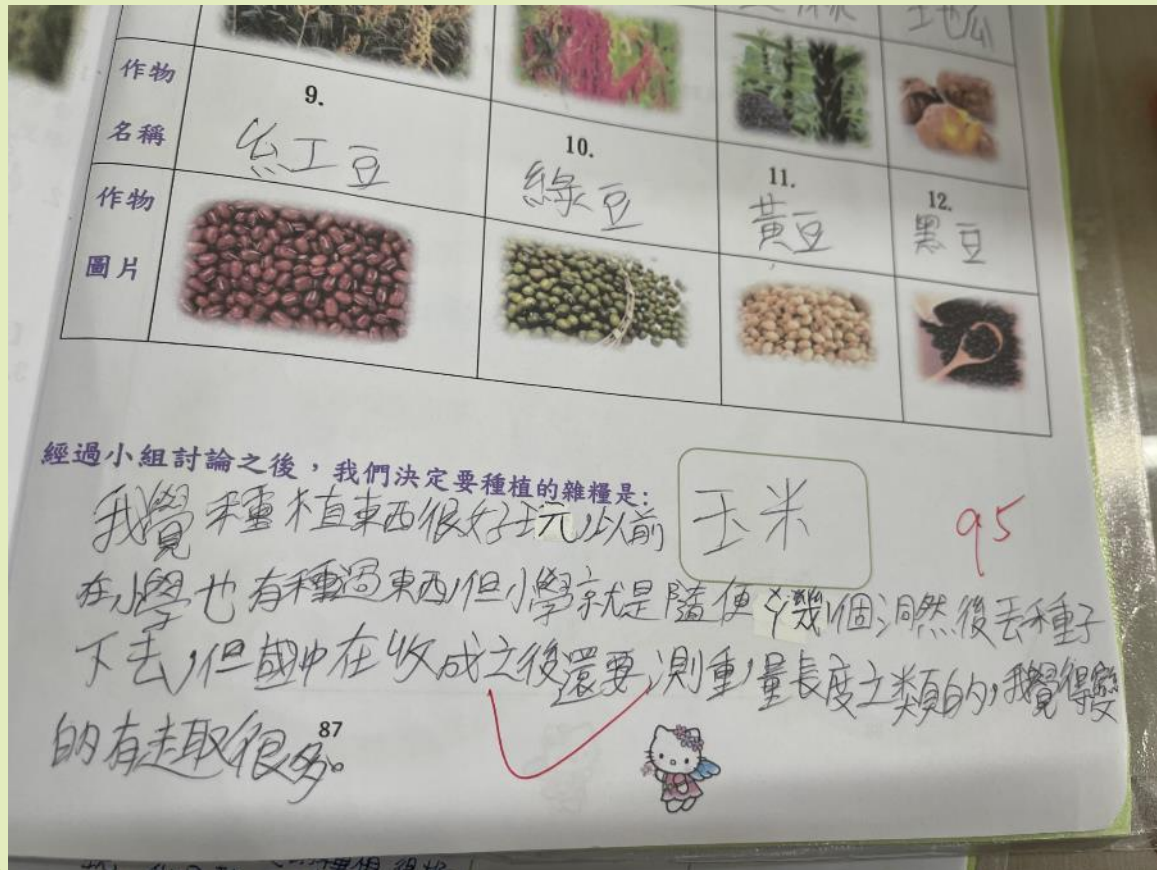 地瓜
作物
名稱
9.
紅豆
10.
綠豆
11.
黃豆
12.
黑豆
作物
圖片
經過小組討論之後，我們決定要種植的雜糧是：
玉米
95
我覺種植東西很好玩，以前
在小學也有種過東西，但小學就是隨便挖幾個洞然後丟種子
下去，但國中在收成之後還要，測重，量長度之類的，我覺得變
的有趣很多。
87